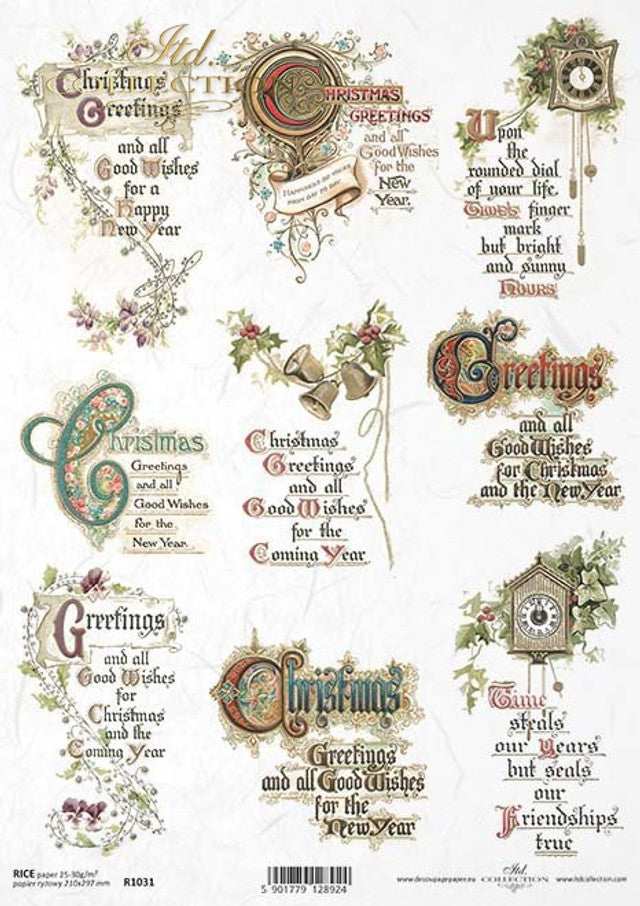 Itd.
COLLECTION
Christmas
Greetings
and all
Good Wishes
for a
Happy
New Year
CHRISTMAS
GREETINGS
and all
Good Wishes
for the
New
Year.
HAPPINESS BE YOURS
FROM DAY TO DAY
Upon
the
rounded dial
of your life.
Time's finger
mark
but bright
and sunny
HOURS
Christmas
Greetings
and all
Good Wishes
for the
New Year.
Christmas
Greetings
and all
Good Wishes
for the
Coming Year
Greetings
and all
Good Wishes
for Christmas
and the New Year
Greetings
and all
Good Wishes
for
Christmas
and the
Coming Year
Christmas
Greetings
and all Good Wishes
for the
New Year
Time
steals
our Years
but seals
our
Friendships
true
RICE paper 25-30g/m²
papier ryżowy 210x297 mm R1031
5 901779 128924
www.decoupagepaper.eu Itd. COLLECTION www.itdcollection.com